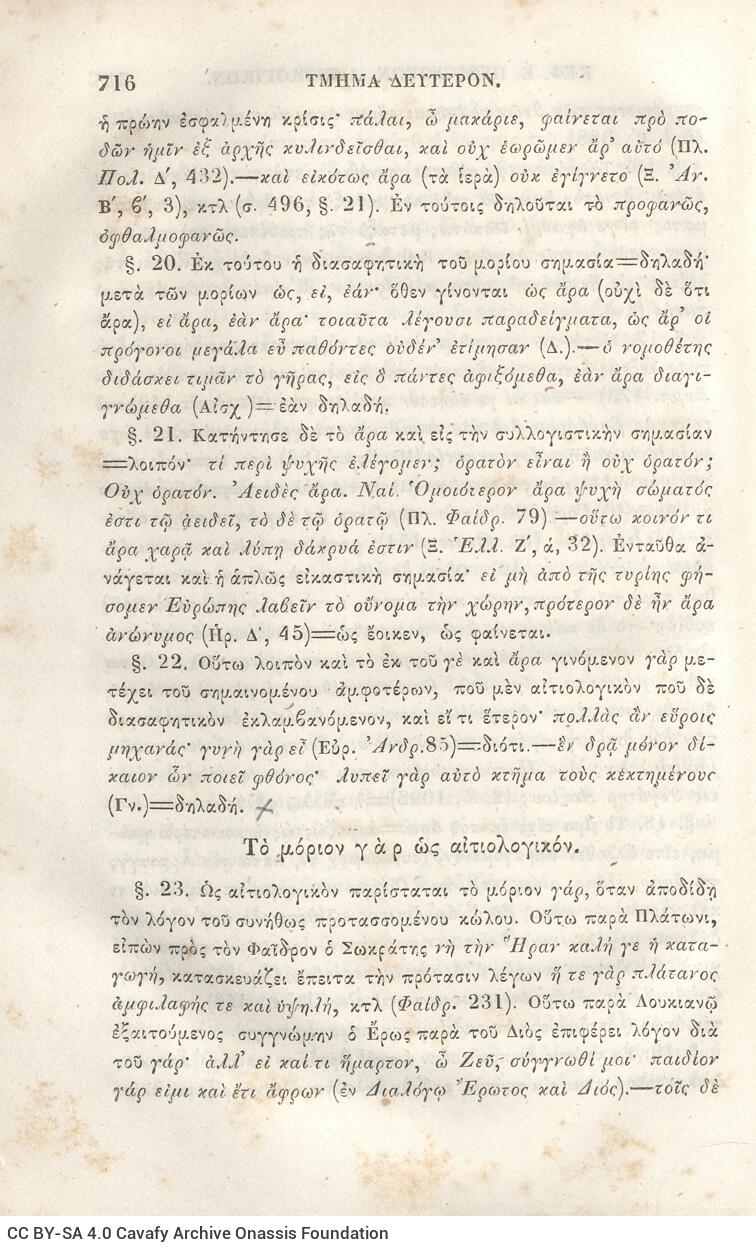 716 ΤΜΗΜΑ ΔΕΥΤΕΡΟΝ.
ἡ πρώην ἐσφαλμένη κρίσις· πάλαι, ὦ μακάριε, φαίνεται πρὸ πο-
δῶν ἡμῖν ἐξ ἀρχῆς κυλινδεῖσθαι, καὶ οὐχ ἑωρῶμεν ἄρ’ αὐτό (Πλ.
Πολ. Δ΄, 432).—καὶ εἰκότως ἄρα (τὰ ἱερὰ) οὐκ ἐγίγνετο (Ξ. Ἀν.
Β΄, β΄, 3), κτλ (σ. 496, §. 21). Ἐν τούτοις δηλοῦται τὸ προφανῶς,
ὀφθαλμοφανῶς.
§. 20. Ἐκ τούτου ἡ διασαφητικὴ τοῦ μορίου σημασία=δηλαδή·
μετὰ τῶν μορίων ὡς, εἰ, ἐάν· ὅθεν γίνονται ὡς ἄρα (οὐχὶ δὲ ὅτι
ἄρα), εἰ ἄρα, ἐὰν ἄρα· τοιαῦτα λέγουσι παραδείγματα, ὡς ἄρ’ οἱ
πρόγονοι μεγάλα εὖ παθόντες οὐδέν’ ἐτίμησαν (Δ.).—ὁ νομοθέτης
διδάσκει τιμᾶν τὸ γῆρας, εἰς ὃ πάντες ἀφιξόμεθα, ἐὰν ἄρα διαγι-
γνώμεθα (Αἰσχ )=ἐὰν δηλαδή.
§. 21. Κατήντησε δὲ τὸ ἄρα καὶ εἰς τὴν συλλογιστικὴν σημασίαν
=λοιπόν· τί περὶ ψυχῆς ἐλέγομεν; ὁρατὸν εἶναι ἢ οὐχ ὁρατόν;
Οὐχ ὁρατόν. Ἀειδὲς ἄρα. Ναί. Ὁμοιότερον ἄρα ψυχὴ σώματός
ἐστι τῷ ἀειδεῖ, τὸ δὲ τῷ ὁρατῷ (Πλ. Φαίδρ. 79).—οὕτω κοινόν τι
ἄρα χαρᾷ καὶ λύπῃ δάκρυά ἐστιν (Ξ. Ἑλλ. Ζ΄, ά, 32). Ἐνταῦθα ἀ-
νάγεται καὶ ἡ ἁπλῶς εἰκαστικὴ σημασία· εἰ μὴ ἀπὸ τῆς τυρίης φή-
σομεν Εὐρώπης λαβεῖν τὸ οὔνομα τὴν χώρην, πρότερον δὲ ἦν ἄρα
ἀνώνυμος (Ἡρ. Δ΄, 45)=ὡς ἔοικεν, ὡς φαίνεται.
§. 22. Οὕτω λοιπὸν καὶ τὸ ἐκ τοῦ γὲ καὶ ἄρα γινόμενον γὰρ με-
τέχει τοῦ σημαινομένου ἀμφοτέρων, ποῦ μὲν αἰτιολογικὸν ποῦ δὲ
διασαφητικὸν ἐκλαμβανόμενον, καὶ εἴ τι ἕτερον· πολλὰς ἂν εὕροις
μηχανάς· γυνὴ γὰρ εἶ (Εὐρ. Ἀνδρ.85)=διότι.—ἓν δρᾷ μόνον δί-
καιον ὧν ποιεῖ φθόνος· λυπεῖ γὰρ αὐτὸ κτῆμα τοὺς κεκτημένους
(Γν.)=δηλαδή.
Τὸ μόριον γὰρ ὡς αἰτιολογικόν.
§. 23. Ὡς αἰτιολογικὸν παρίσταται τὸ μόριον γάρ, ὅταν ἀποδίδῃ
τὸν λόγον τοῦ συνήθως προτασσομένου κώλου. Οὕτω παρὰ Πλάτωνι,
εἰπὼν πρὸς τὸν Φαῖδρον ὁ Σωκράτης νὴ τὴν Ἥραν καλή γε ἡ κατα-
γωγή, κατασκευάζει ἔπειτα τὴν πρότασιν λέγων ἥ τε γὰρ πλάτανος
ἀμφιλαφής τε καὶ ὑψηλή, κτλ (Φαίδρ. 231). Οὕτω παρὰ Λουκιανῷ
ἐξαιτούμενος συγγνώμην ὁ Ἔρως παρὰ τοῦ Διὸς ἐπιφέρει λόγον διὰ
τοῦ γάρ· ἀλλ’ εἰ καί τι ἥμαρτον, ὦ Ζεῦ, σύγγνωθί μοι· παιδίον
γάρ εἰμι καὶ ἔτι ἄφρων (ἐν Διαλόγῳ Ἔρωτος καὶ Διός).—τοῖς δὲ
CC BY-SA 4.0 Cavafy Archive Onassis Foundation